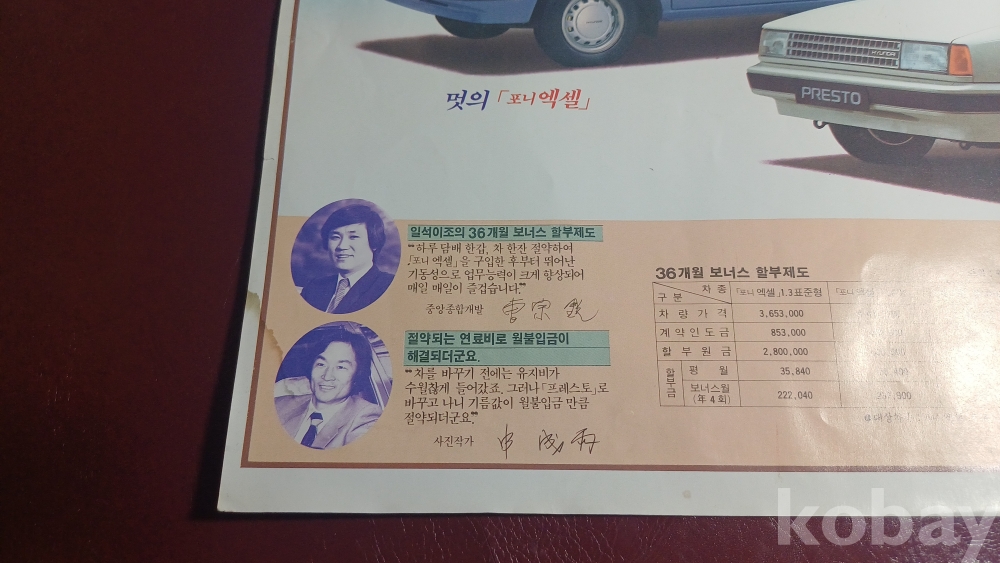 HYUNDAI
PRESTO
멋의 「포니엑셀」
일석이조의 36개월 보너스 할부제도
❝하루 담배 한갑, 차 한잔 절약하여
「포니엑셀」을 구입한 후부터 뛰어난
기동성으로 업무능력이 크게 향상되어
매일 매일이 즐겁습니다.❞
중앙종합개발
절약되는 연료비로 월불입금이
해결되더군요.
❝차를 바꾸기 전에는 유지비가
수월찮게 들어갔죠. 그러나 「프레스토」로
바꾸고 나니 기름값이 월불입금 만큼
절약되더군요.❞
사진작가
36개월 보너스 할부제도
차종 구분 「포니엑셀」1.3표준형
차량가격 3,653,000
계약인도금 853,000
할부원금 2,800,000
할부금 평월 35,840
보너스월 (年4회) 222,040
kobay